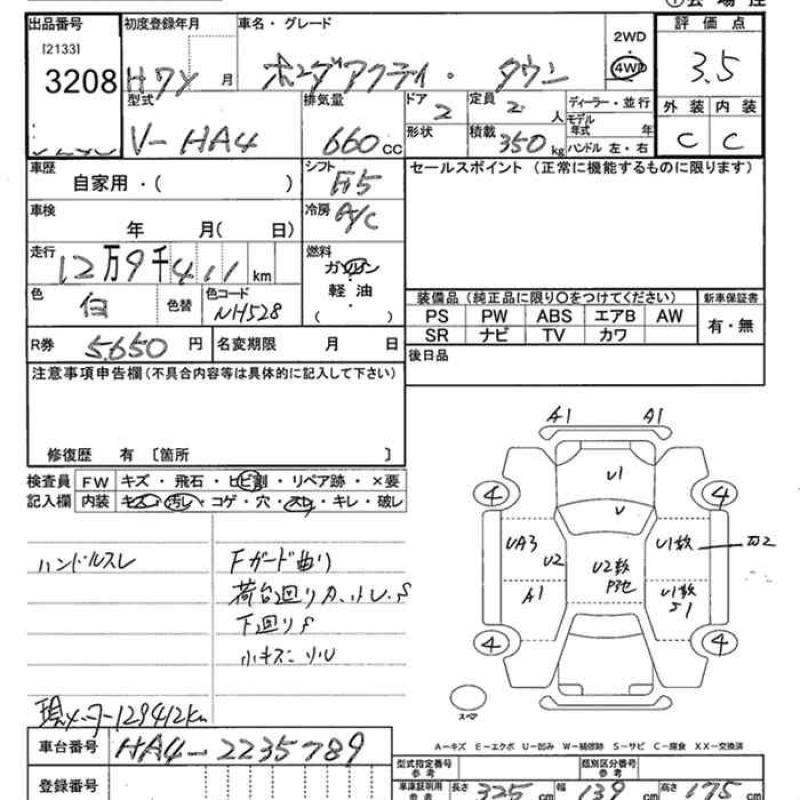 出品番号 初度登録年月 車名・グレード 2WD 評価点
[2133] 3208 H7Y 月 ホンダアクティ・タウン 4WD 3.5
型式 排気量 ドア 2 定員 2 人 ディーラー・並行 外装 内装
V-HA4 660 CC 形状 積載 350 kg モデル年式 年 ハンドル 左・右 C C
車歴 自家用・( ) シフト F5 セールスポイント (正常に機能するものに限ります)
車検 年 月( 日) 冷房 A/C
走行 12万9千411 km 燃料 ガソリン・軽油 ( )
色 白 色替 色コード NH528 装備品 (純正品に限り○をつけてください) 新車保証書
PS PW ABS エアB AW 有・無
SR ナビ TV カワ
R券 5,650 円 名変期限 月 日 後日品
注意事項申告欄 (不具合内容等は具体的に記入して下さい)
修復歴 有 〔箇所 〕
検査員 FW キズ・飛石・ヒビ割・リペア跡・×要
記入欄 内装 キズ・汚レ・コゲ・穴・スレ・キレ・破レ
ハンドルスレ Fガード曲り
荷台回りA.小U.S
下回りS
小キズ.小U
現メーター129412km
A1 A1
4 U1 4
U
UA3 U2 U2数 P3他 U1数 A2
A1 U1数 S1
4 4
スペア
A-キズ E-エクボ U-凹み W-補修跡 S-サビ C-腐食 XX-交換済
車台番号 HA4-2235789 型式指定番号 参考 類別区分番号 参考
登録番号 車庫証明用 参考 長さ 325 cm 幅 139 cm 高さ 175 cm